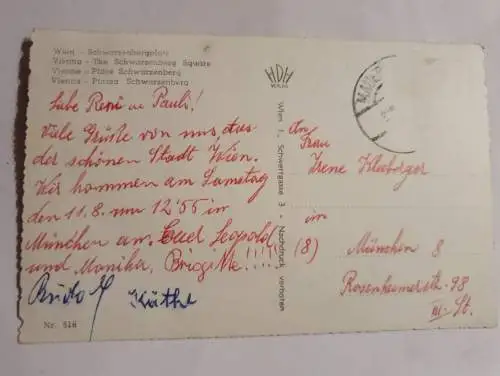 Wien - Schwarzenbergplatz
Vienna - The Schwarzenberg Square
Vienne - Place Schwarzenberg
Vienna - Piazza Schwarzenberg
Liebe Reni u. Pauli!
Viele Grüße von uns, aus
der schönen Stadt Wien.
Wir kommen am Samstag
den 11.8. um 12'55 in
München an. Leopold
und Monika, Brigitte!!!!
Käthe
Nr. 516
HDH
VERLAG
Wien I., Schwertgasse 3 • Nachdruck verboten
An
Frau
Irene Kleeberger
in
(8) München 8
Rosenheimerstr. 98
III. St.